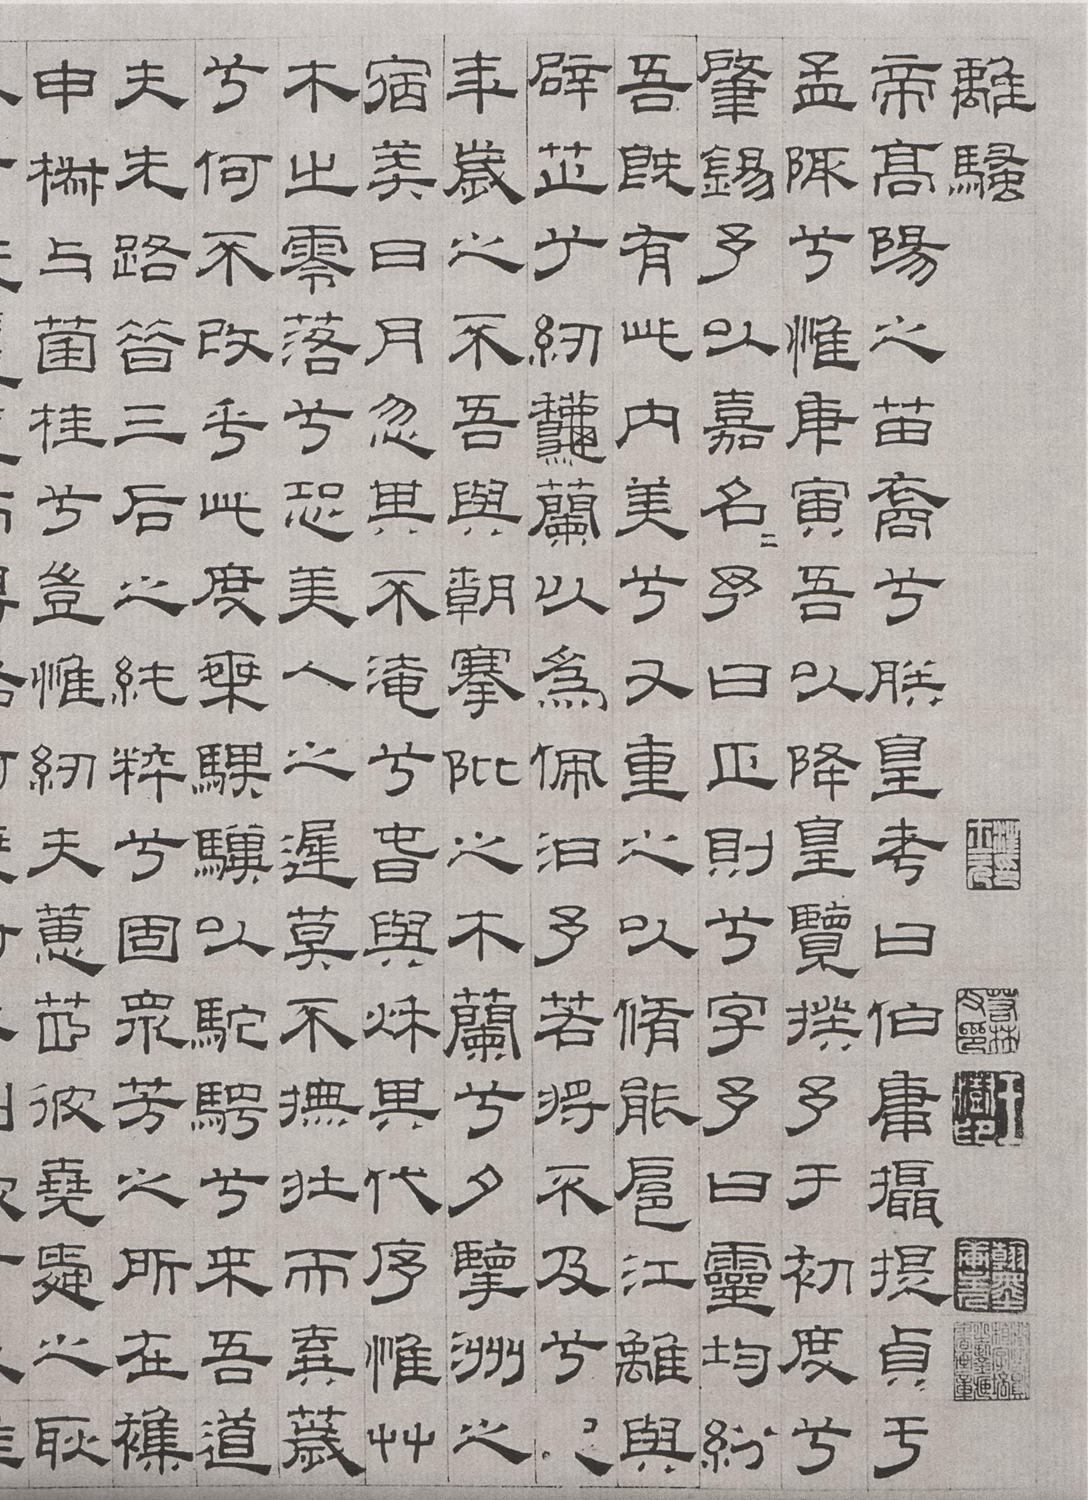 離騷
帝高陽之苗裔兮朕皇考曰伯庸攝提貞于
孟陬兮惟庚寅吾以降皇覽揆予于初度兮
肇錫予以嘉名二予曰正則兮字予曰靈均紛
吾既有此内美兮又重之以脩能扈江離與
辟芷兮紉龝蘭以為佩汩予若將不及兮
年歲之不吾與朝搴阰之木蘭兮夕擥洲之
宿莽日月忽其不淹兮春與秌其代序惟艸
木之零落兮恐美人之遲莫不撫壯而棄薉
兮何不改乎此度椉騏驥以駝騁兮来吾道
夫先路昔三后之純粹兮固眾芳之所在襍
申椒与菌桂兮豈惟紉夫蕙茝彼堯舜之耿